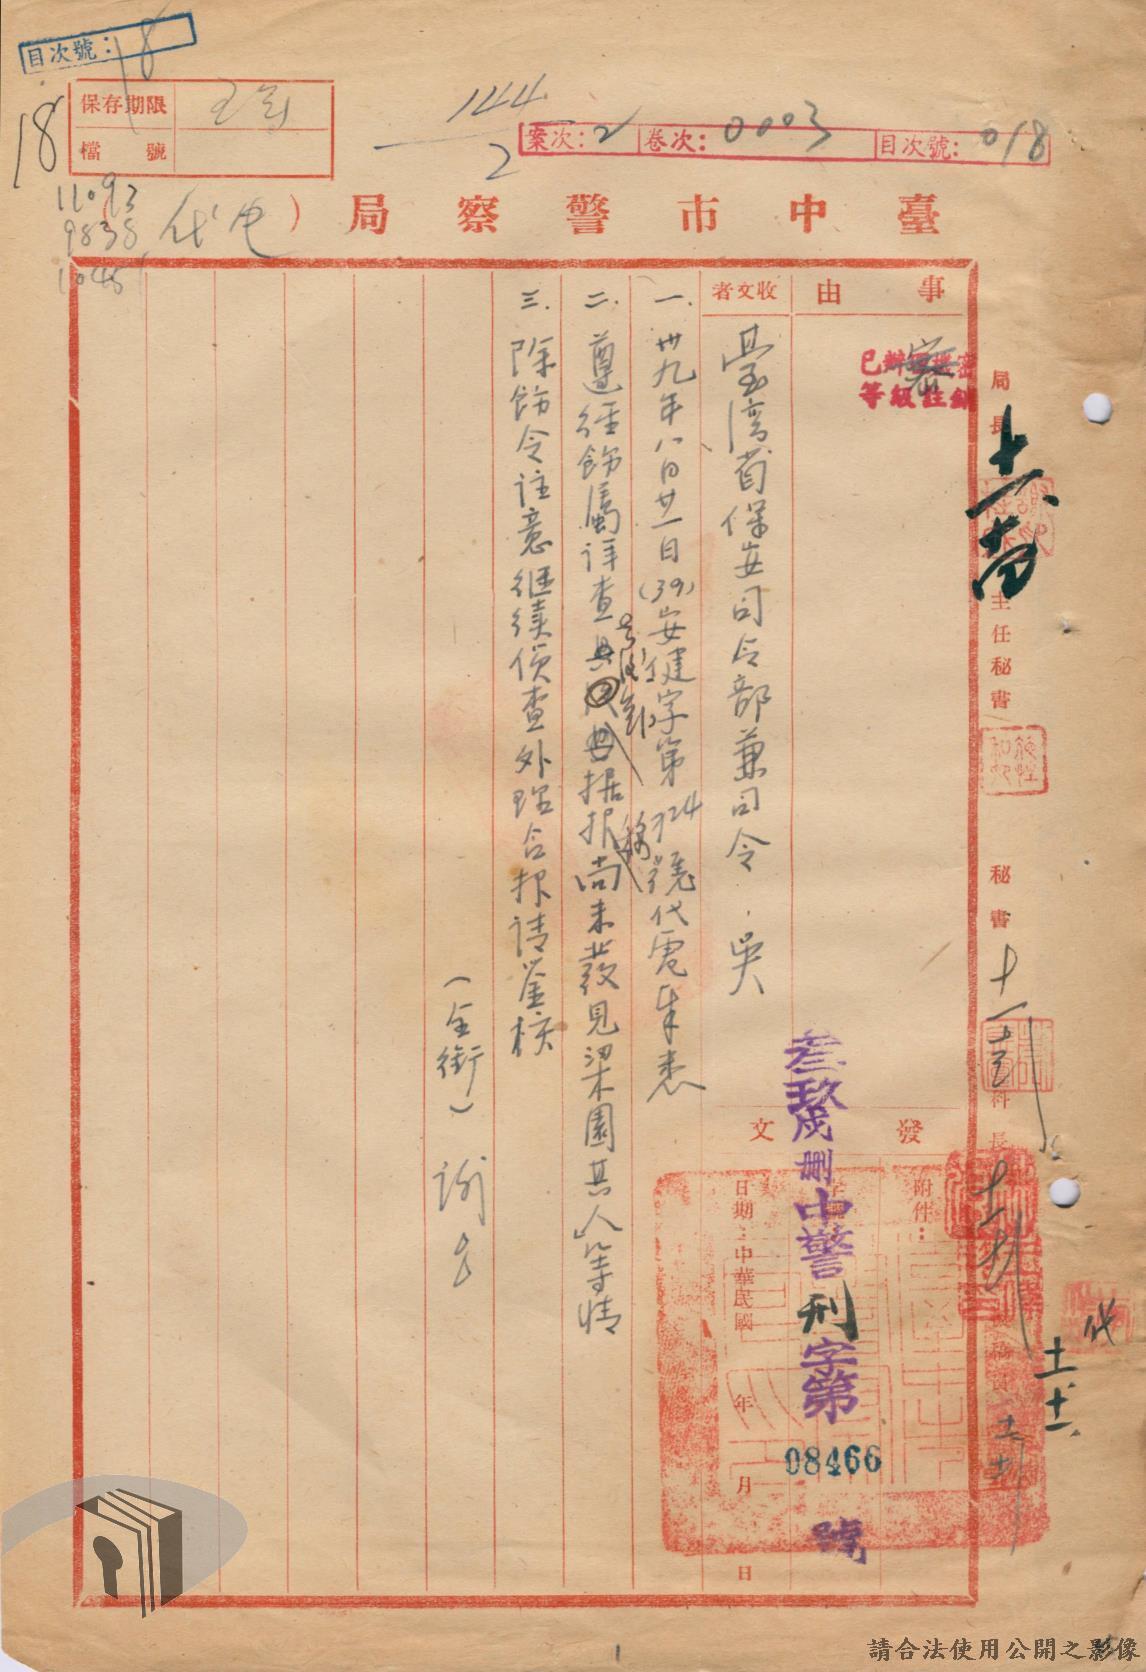 目次號：18
18
保存期限
檔號
144
2
案次：2 卷次：0003 目次號：018
11093
9838
臺中市警察局（代电）
事由
已辦理機密
等級註銷
密
收文者
臺湾省保安司令部兼司令 吳
一. 卅九年八月廿一日(39)安健字第924號代電奉悉
二. 遵經飭屬详查据报尚未發見梁園其人等情
三. 除飭令注意继续偵查外理合报請鉴核
（全銜）謝
發文
附件：
日期：中華民國 年 月 日
叁玖戌刪中警刑字第
08466
號
局長
主任秘書
秘書
科長
代
1
請合法使用公開之影像